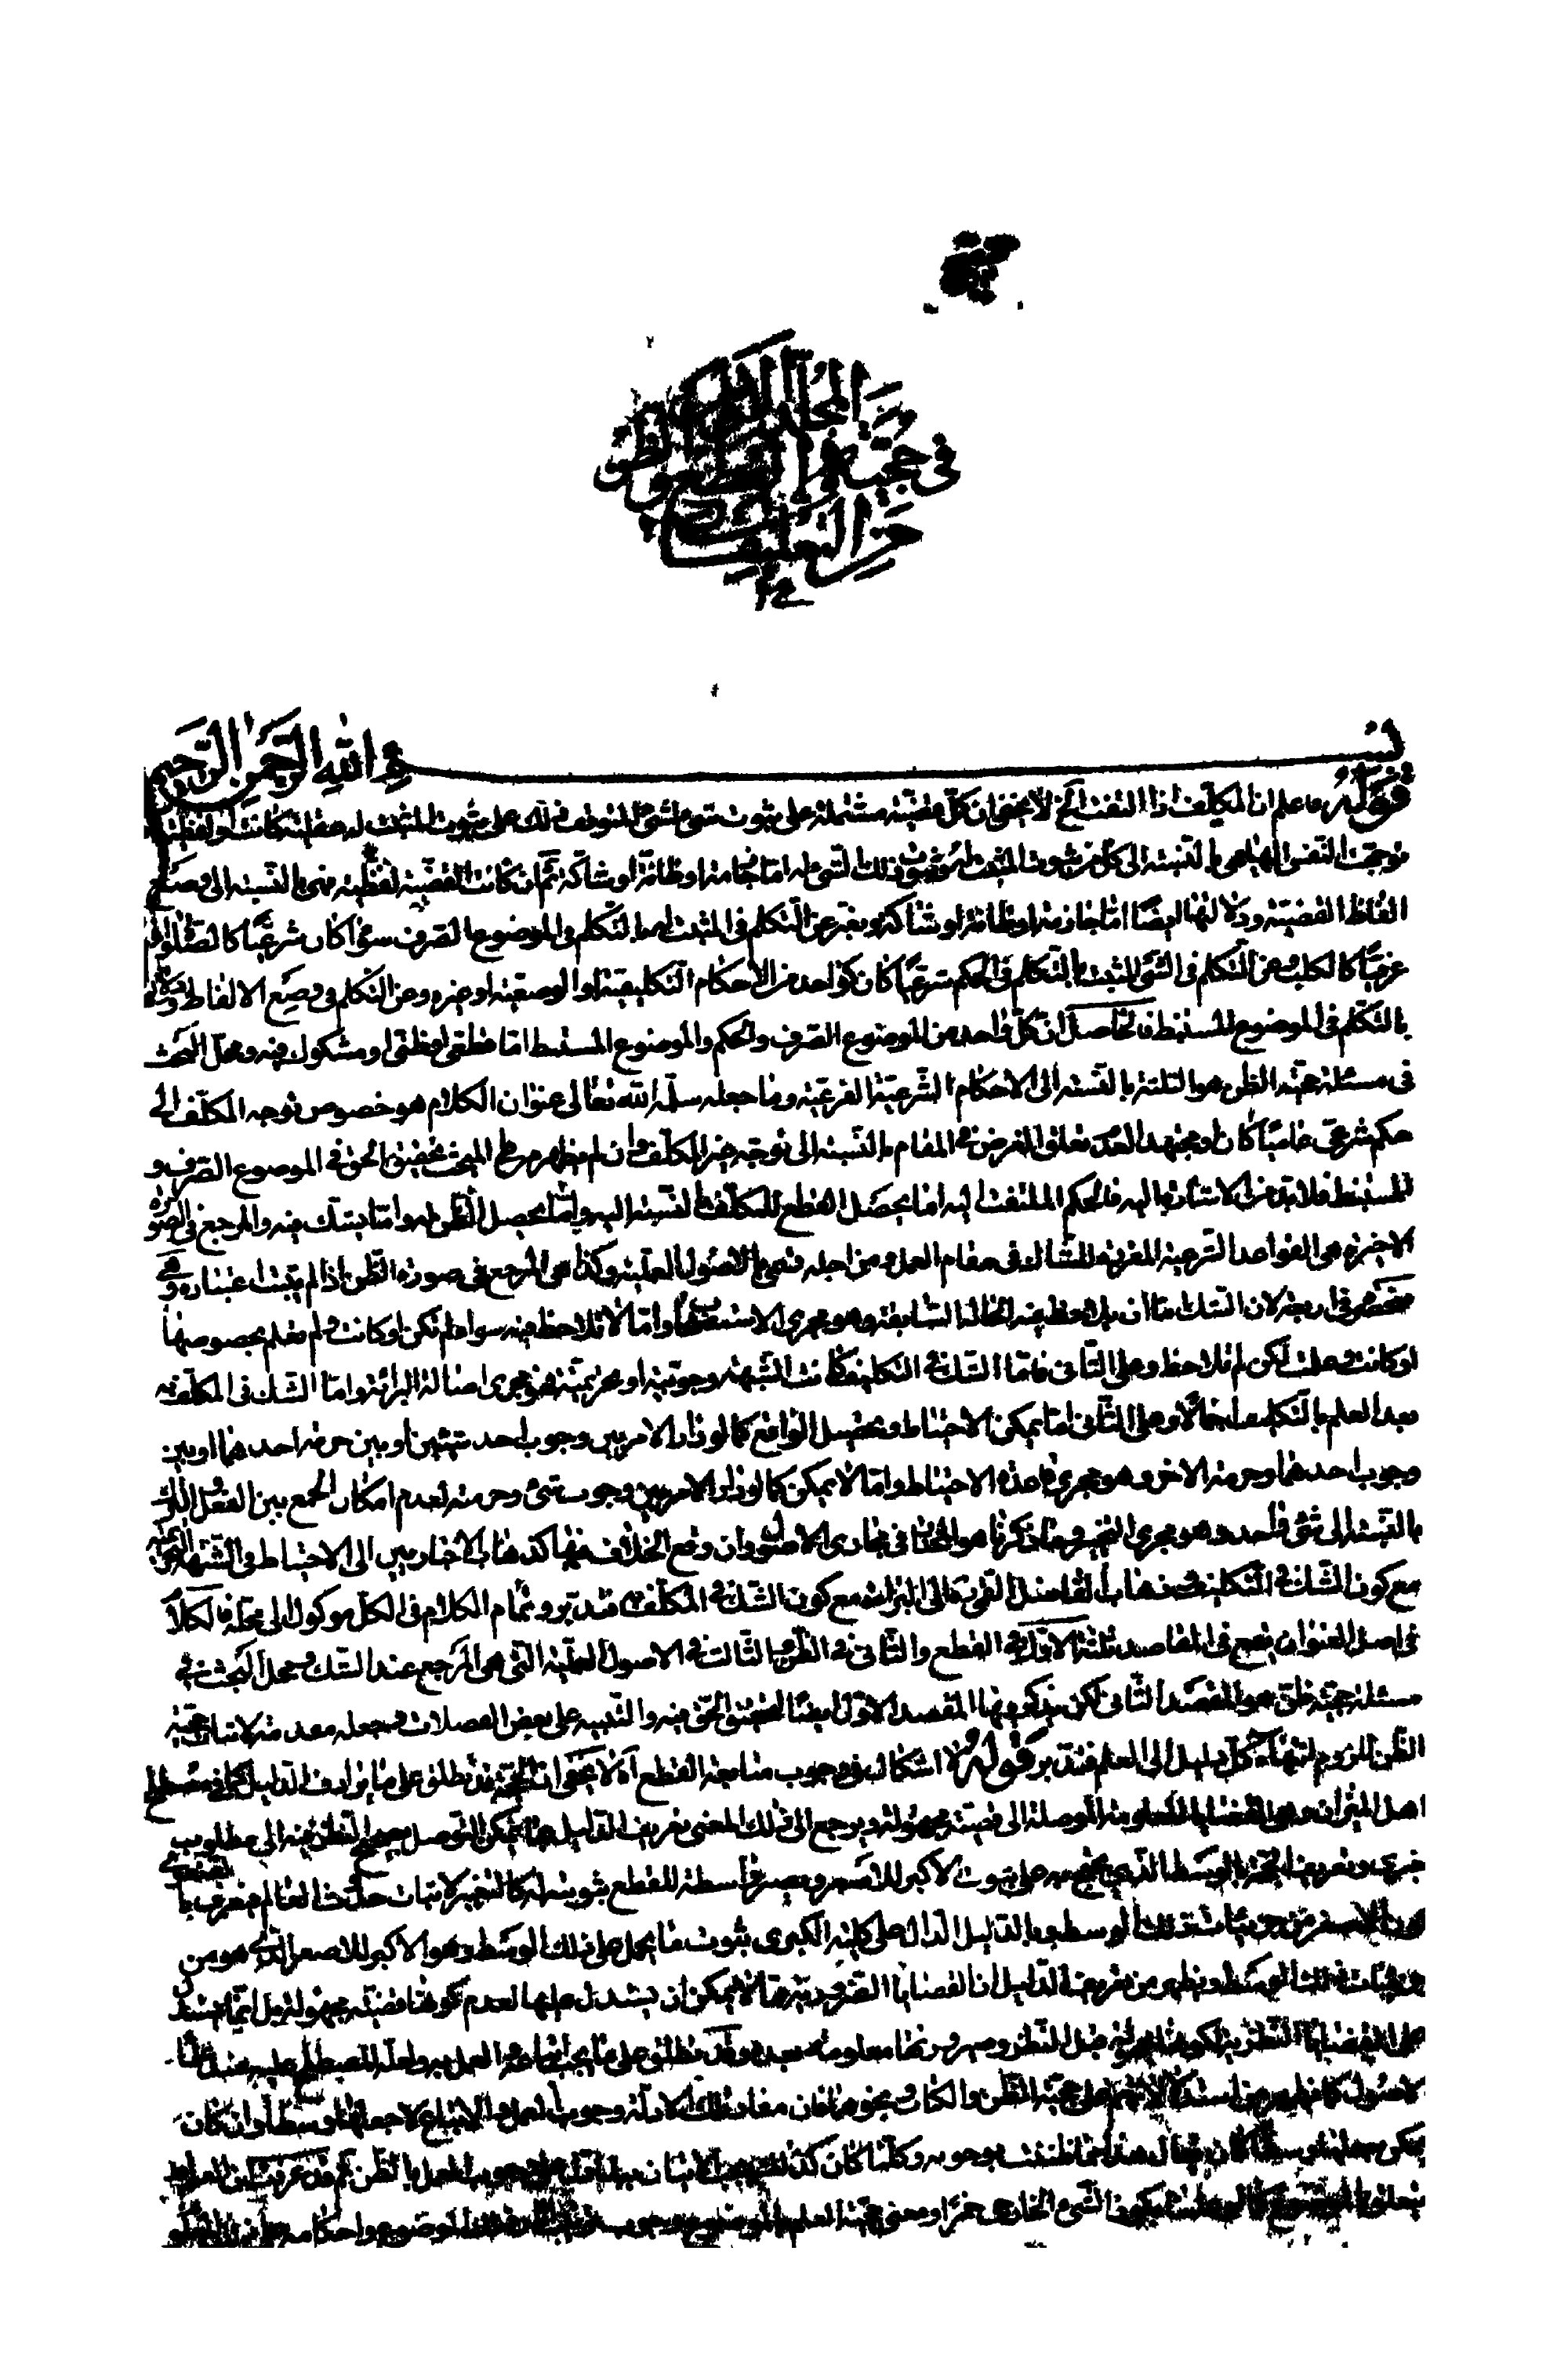 المجلد
في حجية القطع والظن
من التعليقات
بسم الله الرحمن الرحيم
قوله فاعلم ان المكلف اذا التفت الخ لا يخفى ان كل قضية مشتملة على ثبوت شيء لشيء
توجهت النفس اليها هي بالنسبة الى كل من ثبوت المثبت له وثبوت ذلك الشيء له اما جازمة او ظانة او شاكة ثم ان كانت القضية لفظية فهي بالنسبة الى وضع
الفاظ القضية ودلالتها ايضا اما جازمة او ظانة او شاكة ويعبر عن التكلم في المثبت له بالتكلم في الموضوع الصرف سواء كان شرعيا كالصلوة او
عرفيا كالكلب وعن التكلم في الشيء المثبت بالتكلم في الحكم شرعيا كان كواحد من الاحكام التكليفية او الوضعية او غيره وعن التكلم في وضع الالفاظ
بالتكلم في الموضوع المستنبط فالحاصل ان كل واحد من الموضوع الصرف والحكم والموضوع المستنبط اما قطعي او ظني او مشكوك فيه ومحل البحث
في مسئلة حجية الظن هو الثلثة بالنسبة الى الاحكام الشرعية الفرعية وما جعله سلمه الله تعالى عنوان الكلام هو خصوص توجه المكلف الى
حكم شرعي عاميا كان او مجتهدا لعدم تعلق الغرض في المقام بالنسبة الى توجه غير المكلف وان لم يظهر من المبحث تحقيق الحق في الموضوع الصرف و
المستنبط فلا بد من الاشارة اليه فالحكم الملتفت اليه اما يحصل القطع للمكلف بالنسبة اليه واما يحصل الظن له واما يشك فيه والمرجع في الصورة
الاخيرة هي القواعد الشرعية المقررة للشاك في مقام العمل ومن اجله تسمى بالاصول العملية وكذا هي المرجع في صورة الظن اذا لم يثبت اعتباره وهي
منحصرة في اربعة لان الشك اما ان يلاحظ فيه الحالة السابقة وهو مجرى الاستصحاب واما لا تلاحظ فيه سواء لم تكن او كانت ولم تعلم بخصوصها
او كانت وعلمت لكن لم تلاحظ وعلى الثاني فاما الشك في التكليف كانت الشبهة وجوبية او تحريمية فهو مجرى اصالة البرائة واما الشك في المكلف به
بعد العلم بالتكليف اجمالا وعلى الثاني اما يمكن الاحتياط وتحصيل الواقع كما لو دار الامر بين وجوب احد شيئين او بين حرمة احدهما او بين
وجوب احدهما وحرمة الاخر وهو مجرى قاعدة الاحتياط واما لا يمكن كما لو دار الامر بين وجوب شيء وحرمته لعدم امكان الجمع بين الفعل والترك
بالنسبة الى شيء واحد وهو مجرى التخيير وما ذكرنا هو المختار في مجاري الاصول وان وقع الخلاف فيها كذهاب الاخباريين الى الاحتياط في الشبهة التحريمية
مع كون الشك في التكليف وذهاب الفاضل القمي ره الى البرائة مع كون الشك في المكلف به فتدبر وتمام الكلام في الكل موكول الى محله فالكلام
في اصل العنوان يقع في المقاصد ثلثة الاول في القطع والثاني في الظن والثالث في الاصول العملية التي هي المرجع عند الشك ومحل البحث في
مسئلة حجية ظني هو المقصد الثاني لكن يذكر فيها المقصد الاول ايضا لتحقيق الحق فيه والتنبيه على بعض المعضلات وجعله مقدمة لاثبات حجية
الظن للزوم انتهاء كل دليل الى العلم فتدبر قوله لا اشكال في وجوب متابعة القطع اه لا يخفى ان الحجة قد تطلق على ما يرادف الدليل كما في مصطلح
اهل الميزان وهي القضايا المعلومة الموصلة الى قضية مجهولة ويرجع الى ذلك المعنى تعريف الدليل بما يمكن التوصل بصحيح النظر فيه الى مطلوب
خبري وتعريف الحجة بالوسط الذي يحتج به على ثبوت الاكبر للاصغر ويصير واسطة للقطع بثبوته له كالتغير لاثبات حدوث العالم
الاصغر من جزئيات ذلك الوسط وبالدليل الدال على كلية الكبرى بثبوت ما يحمل على ذلك الوسط وهو الاكبر للاصغر الذي هو من
جزئيات ذلك الوسط ويظهر من تعريف الدليل ان القضايا الضرورية مما لا يمكن ان يستدل عليها لعدم كونها قضية مجهولة بل انما يستدل
على القضايا النظرية لكونها مجهولة قبل النظر وصيرورتها معلومة بعده وقد تطلق على ما يجب اتباعه والعمل به ولعله المصطلح عليه عند علماء
الاصول كما يظهر من استدلالاتهم على حجية الظن والكتاب ونحوهما فان مفاد تلك الادلة وجوب العمل والاتباع لا جعلها وسطا وان كان
يمكن جعلها وسطا كان يقال هذا مما ظننت بوجوبه وكلما كان كذلك